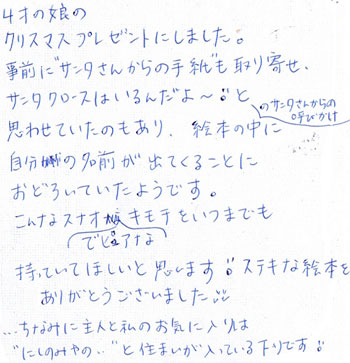 4才の娘の
クリスマスプレゼントにしました。
事前に"サンタさんからの手紙"も取り寄せ、
サンタクロースはいるんだよ〜と
思わせていたのもあり、絵本の中に
のサンタさんからの
呼びかけ
自分の名前が出てくることに
おどろいていたようです。
こんなスナオ キモチをいつまでも
でピュアな
持っていてほしいと思います ステキな絵本を
ありがとうございました
…ちなみに主人と私のお気に入りは
"にしのみやの.."と住まいが入っている下りです